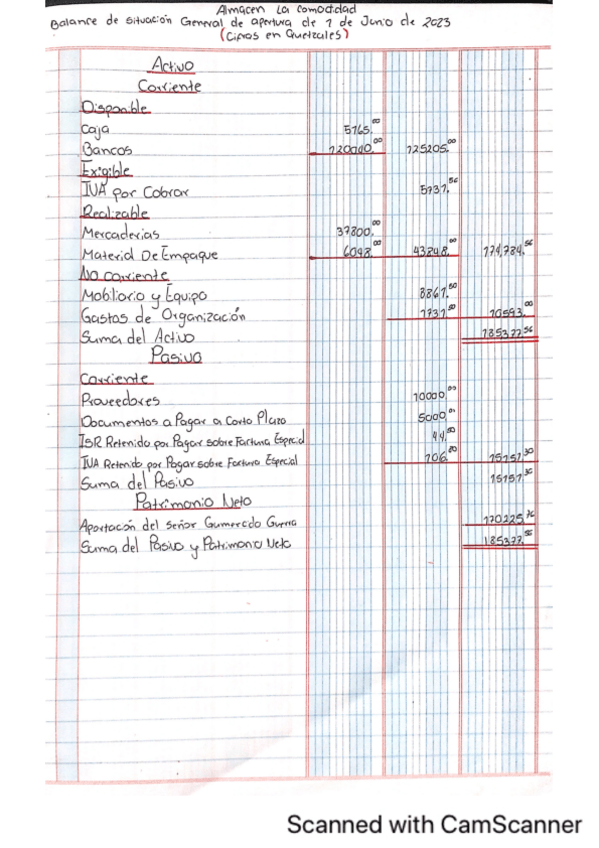 Almacen La Comodidad
Balance de Situación General de apertura de 1 de Junio de 2023
(Cifras en Quetzales)
Activo
Corriente
Disponible
Caja 5165.00
Bancos 120040.00 125205.00
Exigible
IVA por Cobrar 5731.56
Realizable
Mercaderias 37800.00
Material De Empaque 6048.00 43848.00 174,784.56
No corriente
Mobiliario y Equipo 8861.50
Gastos de Organización 1731.50 10593.00
Suma del Activo 185377.56
Pasivo
Corriente
Proveedores 10000.00
Documentos a Pagar a Corto Plazo 5000.00
ISR Retenido por Pagar sobre Factura Especial 44.50
IVA Retenido por Pagar sobre Factura Especial 106.80 15151.30
Suma del Pasivo 15151.30
Patrimonio Neto
Aportación del Señor Gumercedo Guerra 170226.26
Suma del Pasivo y Patrimonio Neto 185377.56
Scanned with CamScanner